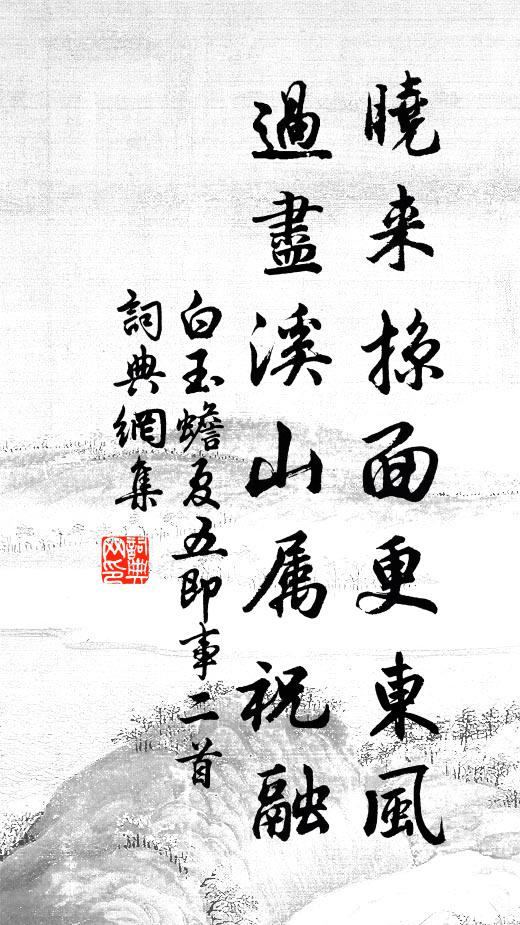 曉来掠面更東風
過盡溪山属祝融
白玉蟾夏五即事二首
詞典網集
詞典网印